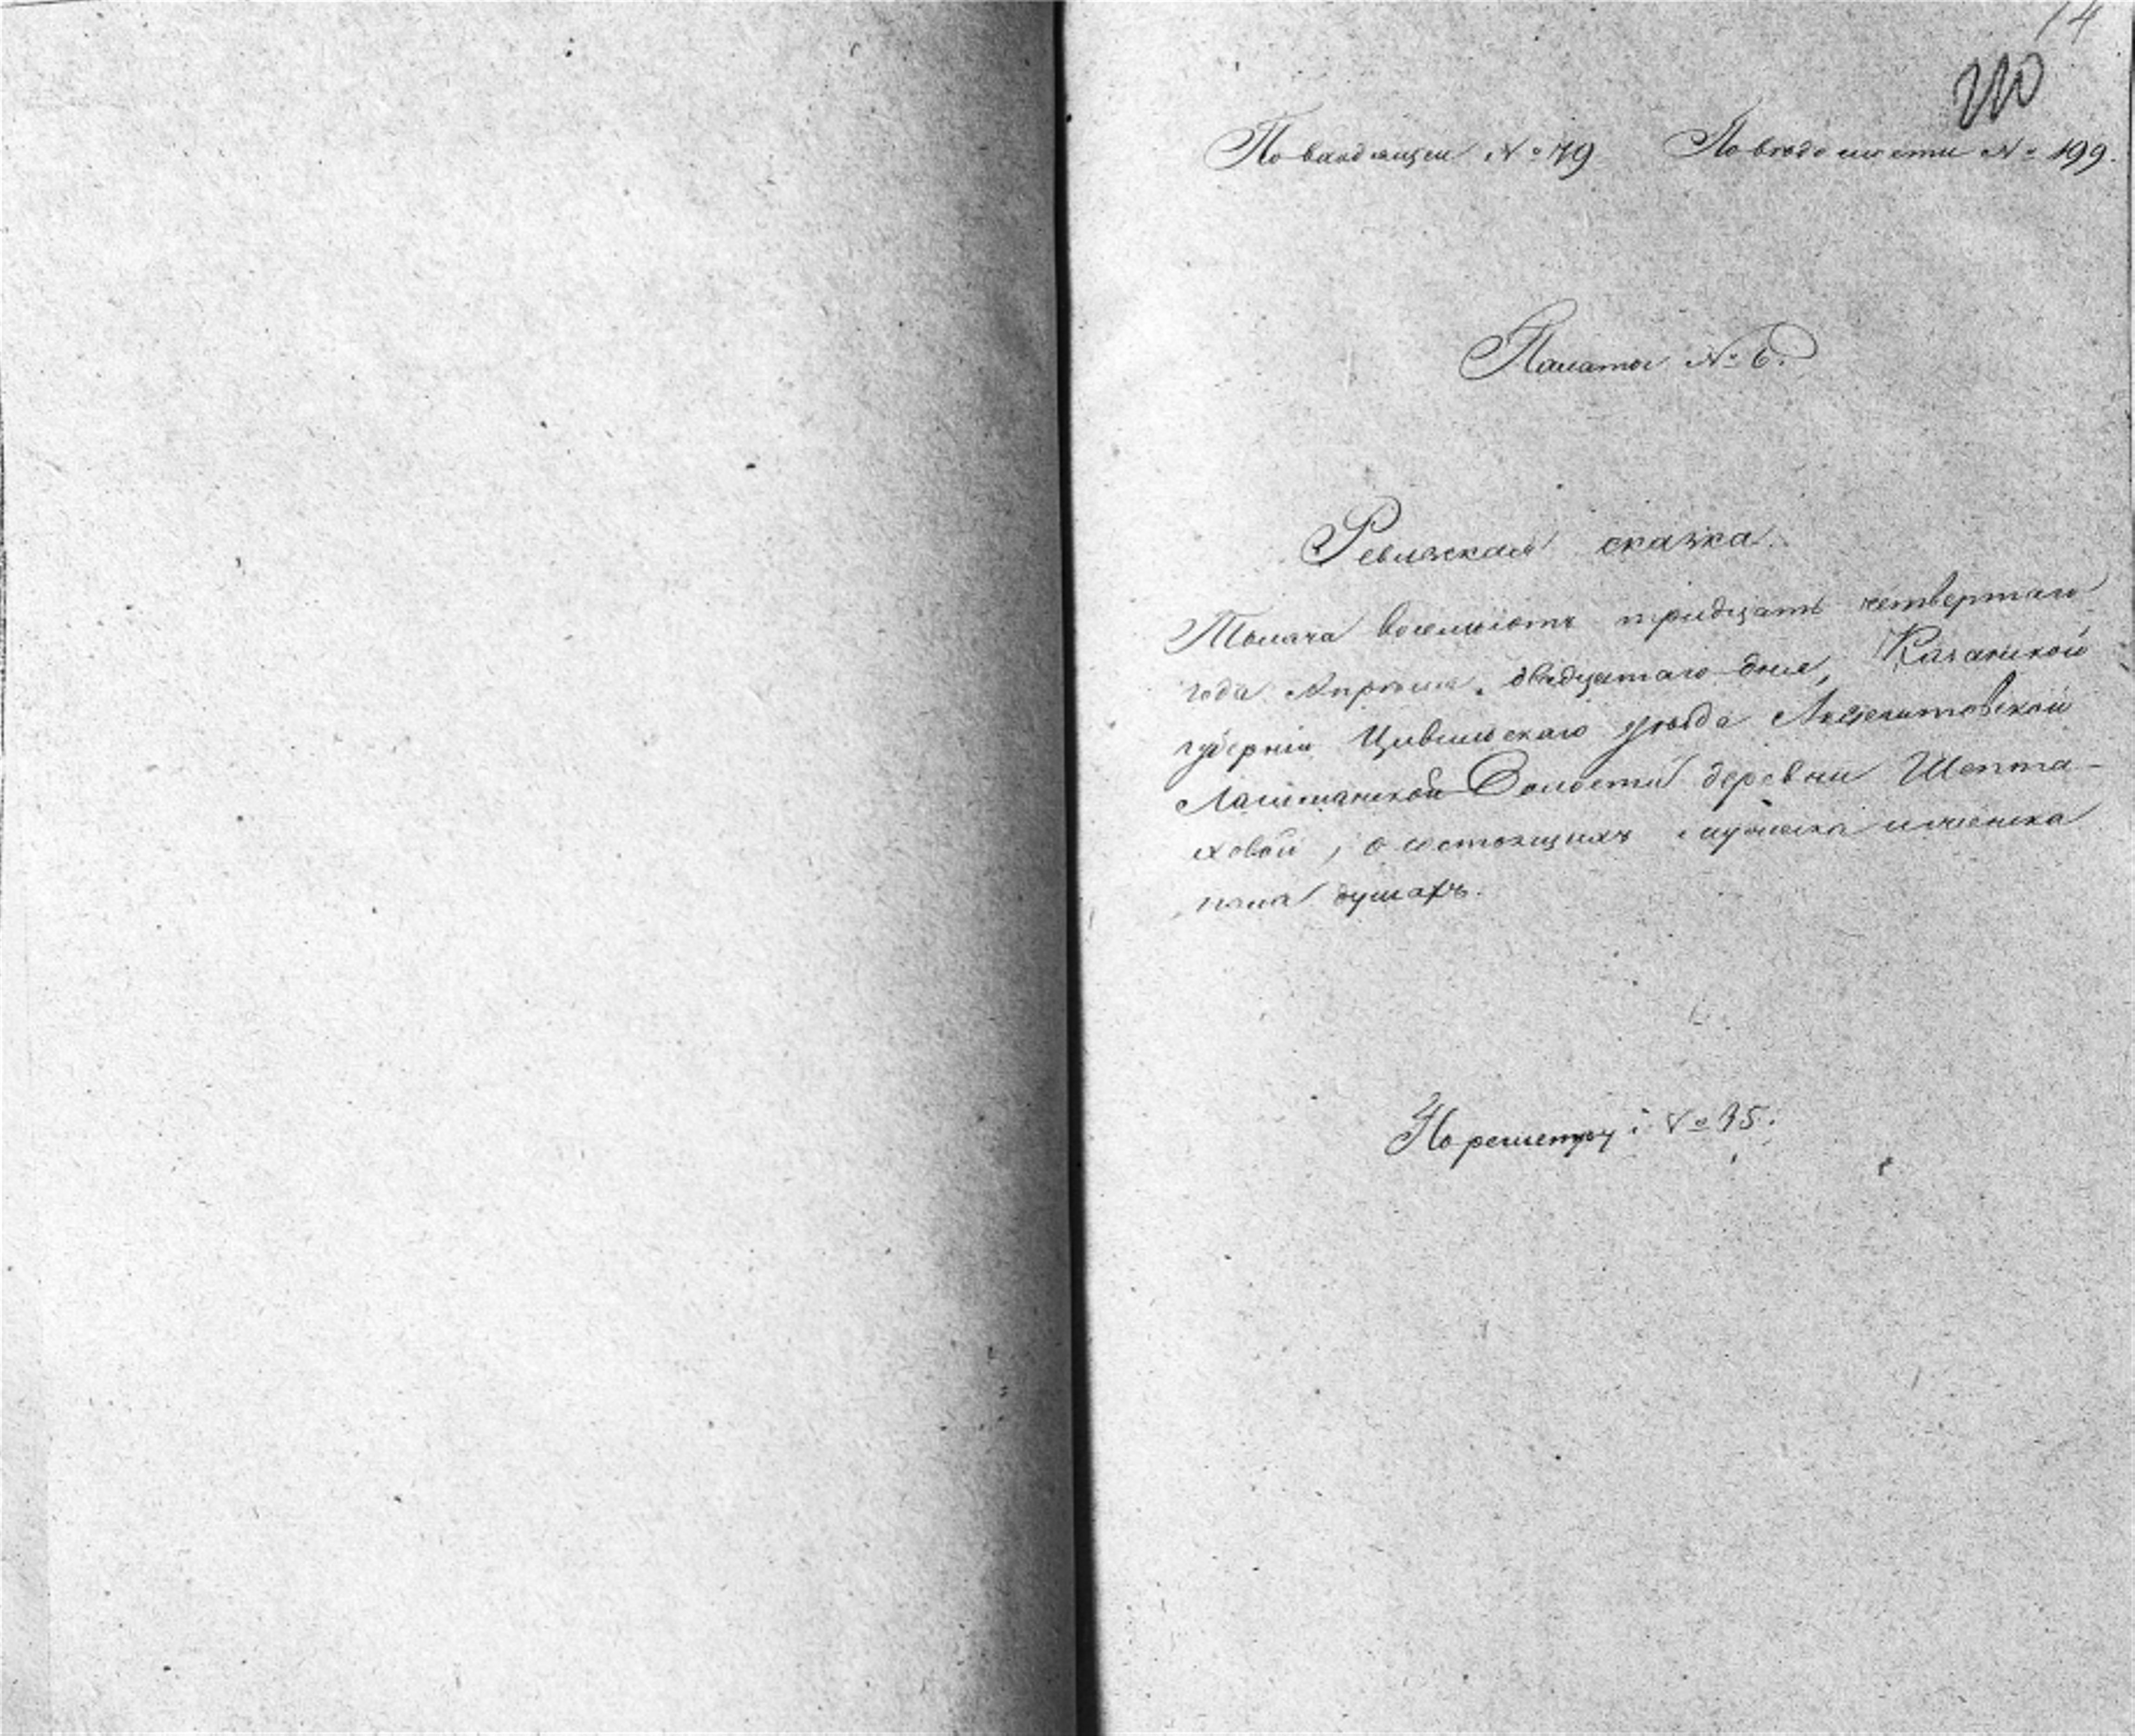 14
210
По входящей № 79 По ведомости № 199.
Палаты № 6.
Ревизская сказка.
Тысяча восемьсотъ тридцать четвертаго
года Апрѣля двадцатаго дня, Казанской
губерніи Цивильскаго уѣзда
Лашманской Волости деревни Шепта-
ховой, о состоящихъ мужеска и женска
пола душахъ.
По реэстру: № 35.